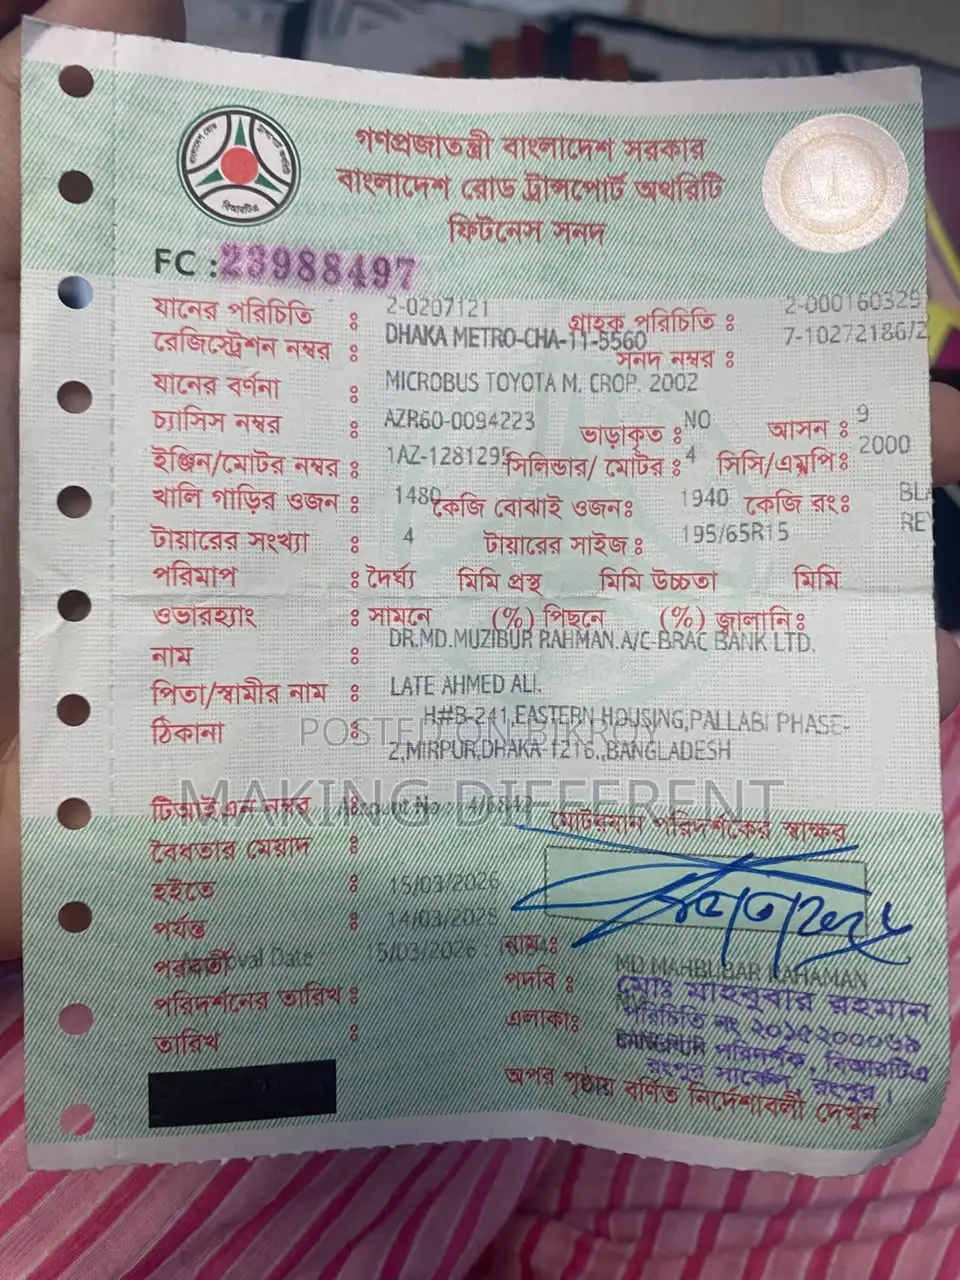 গণপ্রজাতন্ত্রী বাংলাদেশ সরকার
বাংলাদেশ রোড ট্রান্সপোর্ট অথরিটি
ফিটনেস সনদ
FC : 23988497
যানের পরিচিতি : 2-0207121 গ্রাহক পরিচিতি : 2-000160325
রেজিস্ট্রেশন নম্বর : DHAKA METRO-CHA-11-5560 সনদ নম্বর : 7-10272186/2
যানের বর্ণনা : MICROBUS TOYOTA M. CROP. 2002
চ্যাসিস নম্বর : AZR60-0094223 ভাড়াকৃত : NO আসন : 9
ইঞ্জিন/মোটর নম্বর : 1AZ-1281295 সিলিন্ডার/ মোটর : 4 সিসি/এমপি : 2000
খালি গাড়ির ওজন : 1480 কেজি বোঝাই ওজন : 1940 কেজি রং : BLA
REY
টায়ারের সংখ্যা : 4 টায়ারের সাইজ : 195/65R15
পরিমাপ : দৈর্ঘ্য মিমি প্রস্থ মিমি উচ্চতা মিমি
ওভারহ্যাং : সামনে (%) পিছনে (%) জ্বালানি :
নাম : DR.MD.MUZIBUR RAHMAN.A/C-BRAC BANK LTD.
পিতা/স্বামীর নাম : LATE AHMED ALI.
ঠিকানা : H#B-241,EASTERN HOUSING,PALLABI PHASE-
2,MIRPUR,DHAKA-1216.,BANGLADESH
POSTED ON BIKROY
MAKING DIFFERENT
টিআইএন নম্বর :
মোটরযান পরিদর্শকের স্বাক্ষর
বৈধতার মেয়াদ :
হইতে : 15/03/2026
পর্যন্ত : 14/03/2028
পরবর্তী Approval Date 15/03/2026 :
পরিদর্শনের তারিখ :
তারিখ :
নাম : MD MAHBUBAR RAHAMAN
মোঃ মাহবুবার রহমান
পদবি :
পরিচিতি নং ২০১৫২০০০৬৯
এলাকা : RANGPUR পরিদর্শক, বিআরটিএ
রংপুর সার্কেল, রংপুর।
অপর পৃষ্ঠায় বর্ণিত নির্দেশাবলী দেখুন